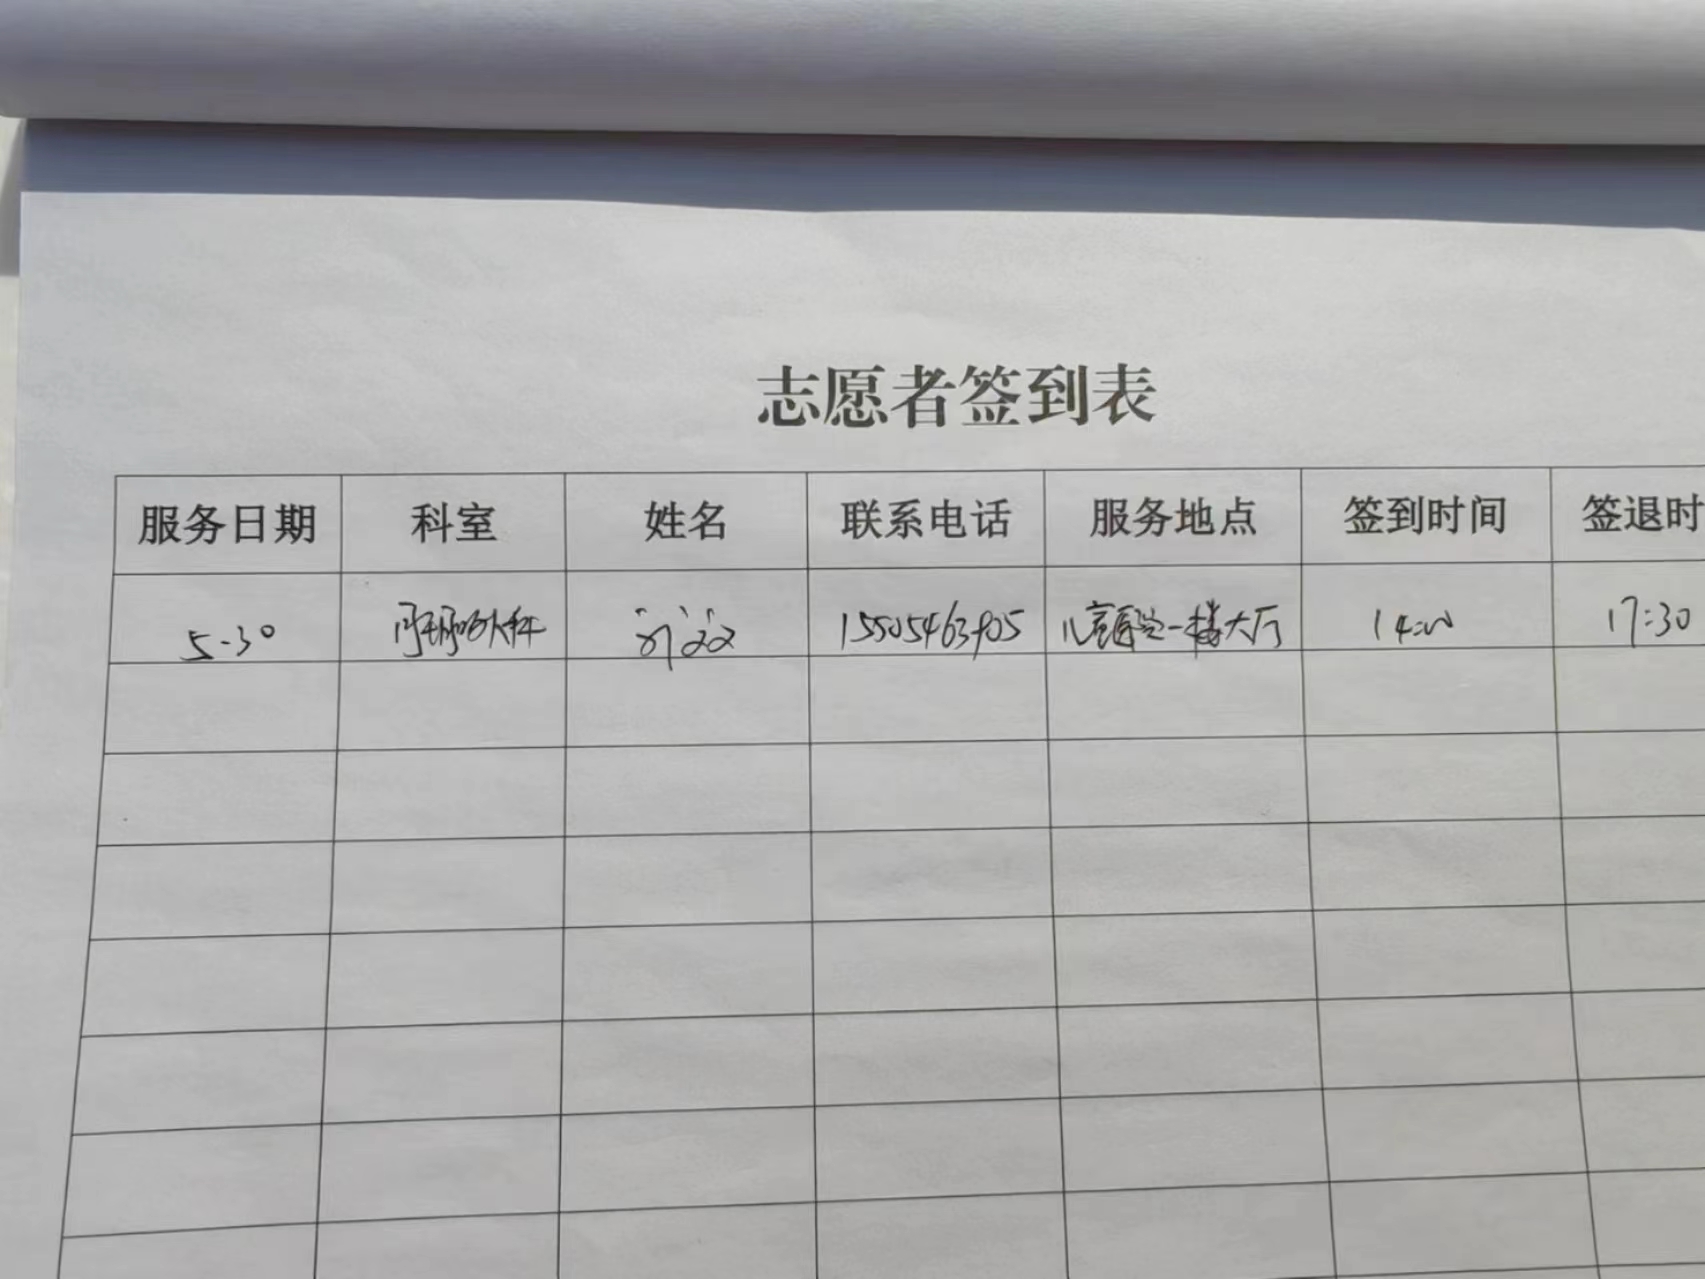 志愿者签到表
服务日期 科室 姓名 联系电话 服务地点 签到时间 签退时
5-30 肝胆外科 刘 15505463905 儿童医院一楼大厅 14:00 17:30